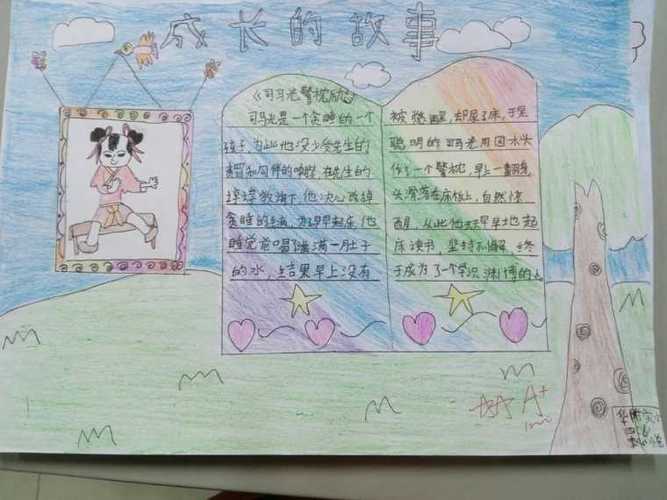 成长的故事
《司马光警枕励志》
司马光是一个贪睡的一个
孩子,为此他没少受先生的
责罚和同伴的嘲笑,在先生的
谆谆教诲下,他决心改掉
贪睡的毛病,为了早早起床,他
睡觉前喝了满满一肚子
的水,结果早上没有
被憋醒,却尿了床,于是
聪明的司马光用圆木头
作了一个警枕,早上一翻身,
头滑落在床板上,自然惊
醒,从此他天天早早地起
床读书,坚持不懈,终
于成为了一个学识渊博的人
A+